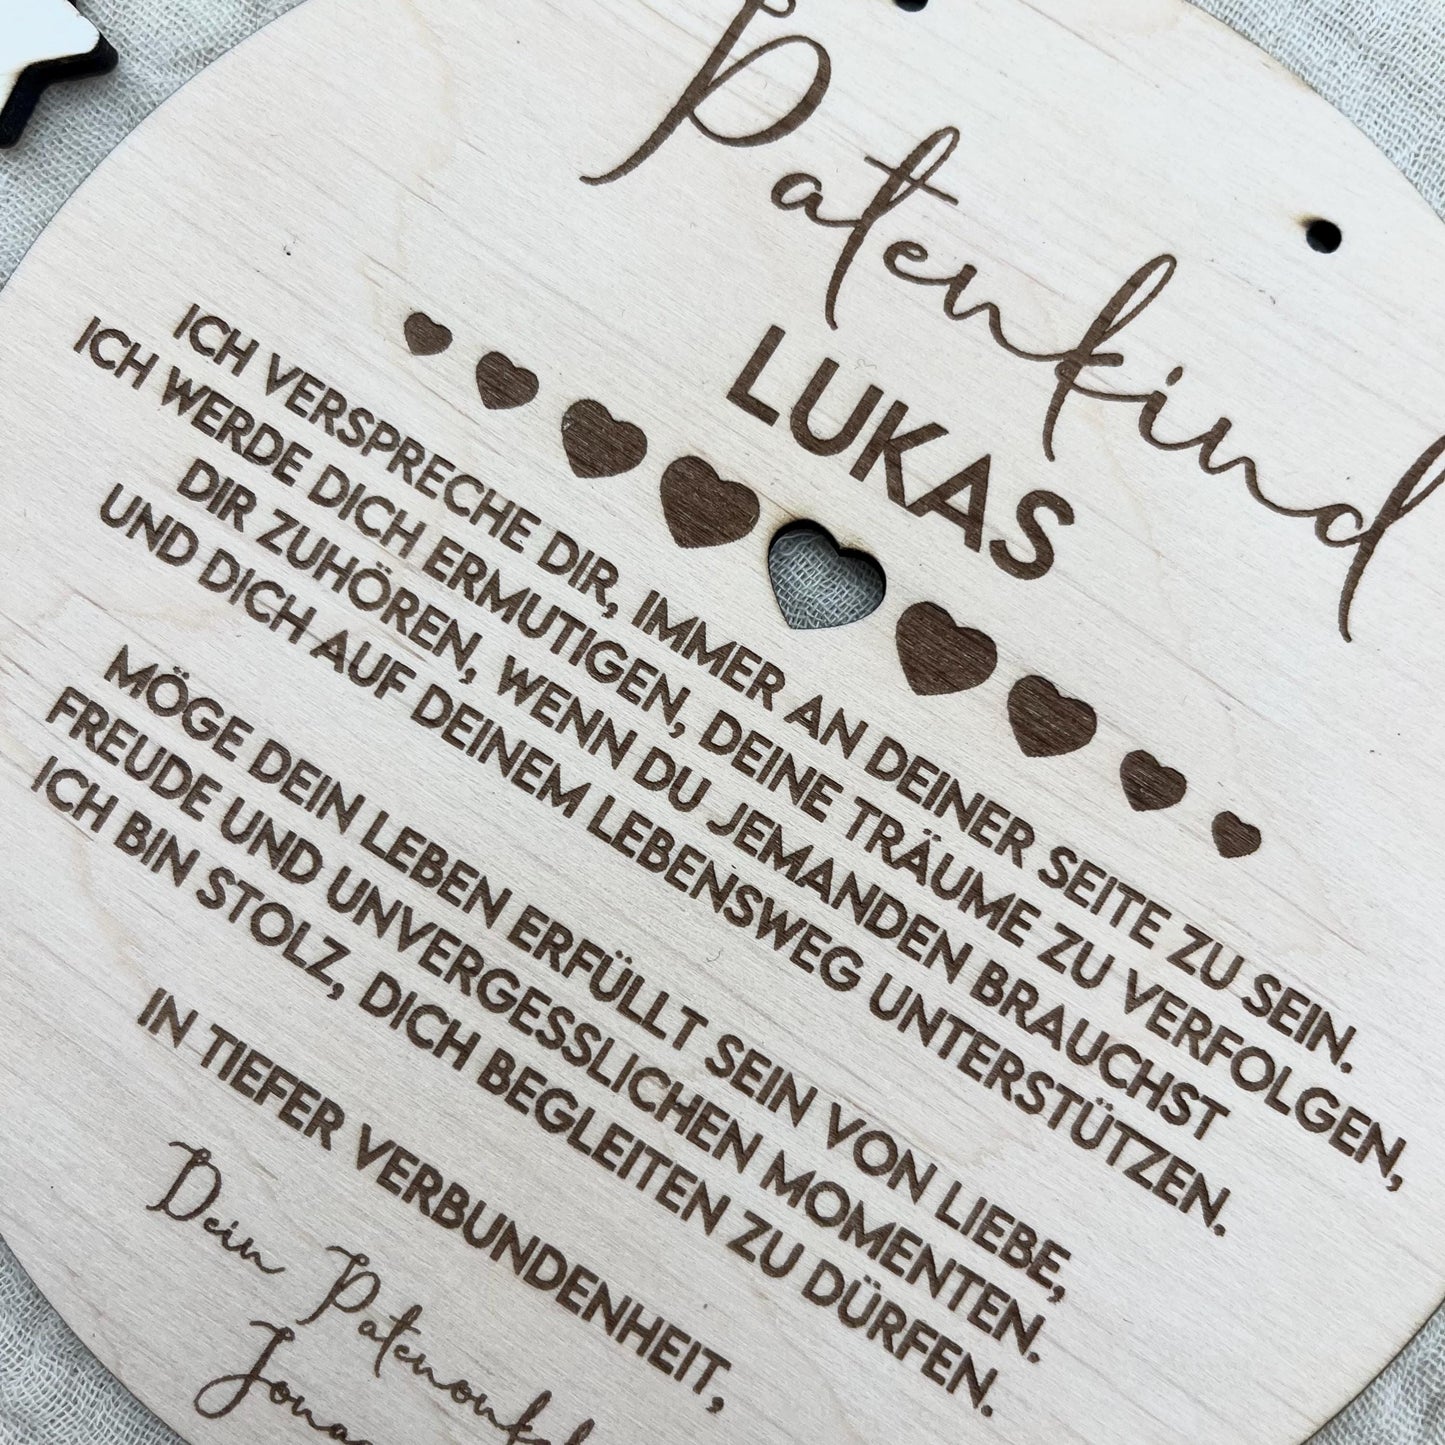 Patenkind
LUKAS
ICH VERSPRECHE DIR, IMMER AN DEINER SEITE ZU SEIN.
ICH WERDE DICH ERMUTIGEN, DEINE TRÄUME ZU VERFOLGEN,
DIR ZUHÖREN, WENN DU JEMANDEN BRAUCHST
UND DICH AUF DEINEM LEBENSWEG UNTERSTÜTZEN.
MÖGE DEIN LEBEN ERFÜLLT SEIN VON LIEBE,
FREUDE UND UNVERGESSLICHEN MOMENTEN.
ICH BIN STOLZ, DICH BEGLEITEN ZU DÜRFEN.
IN TIEFER VERBUNDENHEIT,
Dein